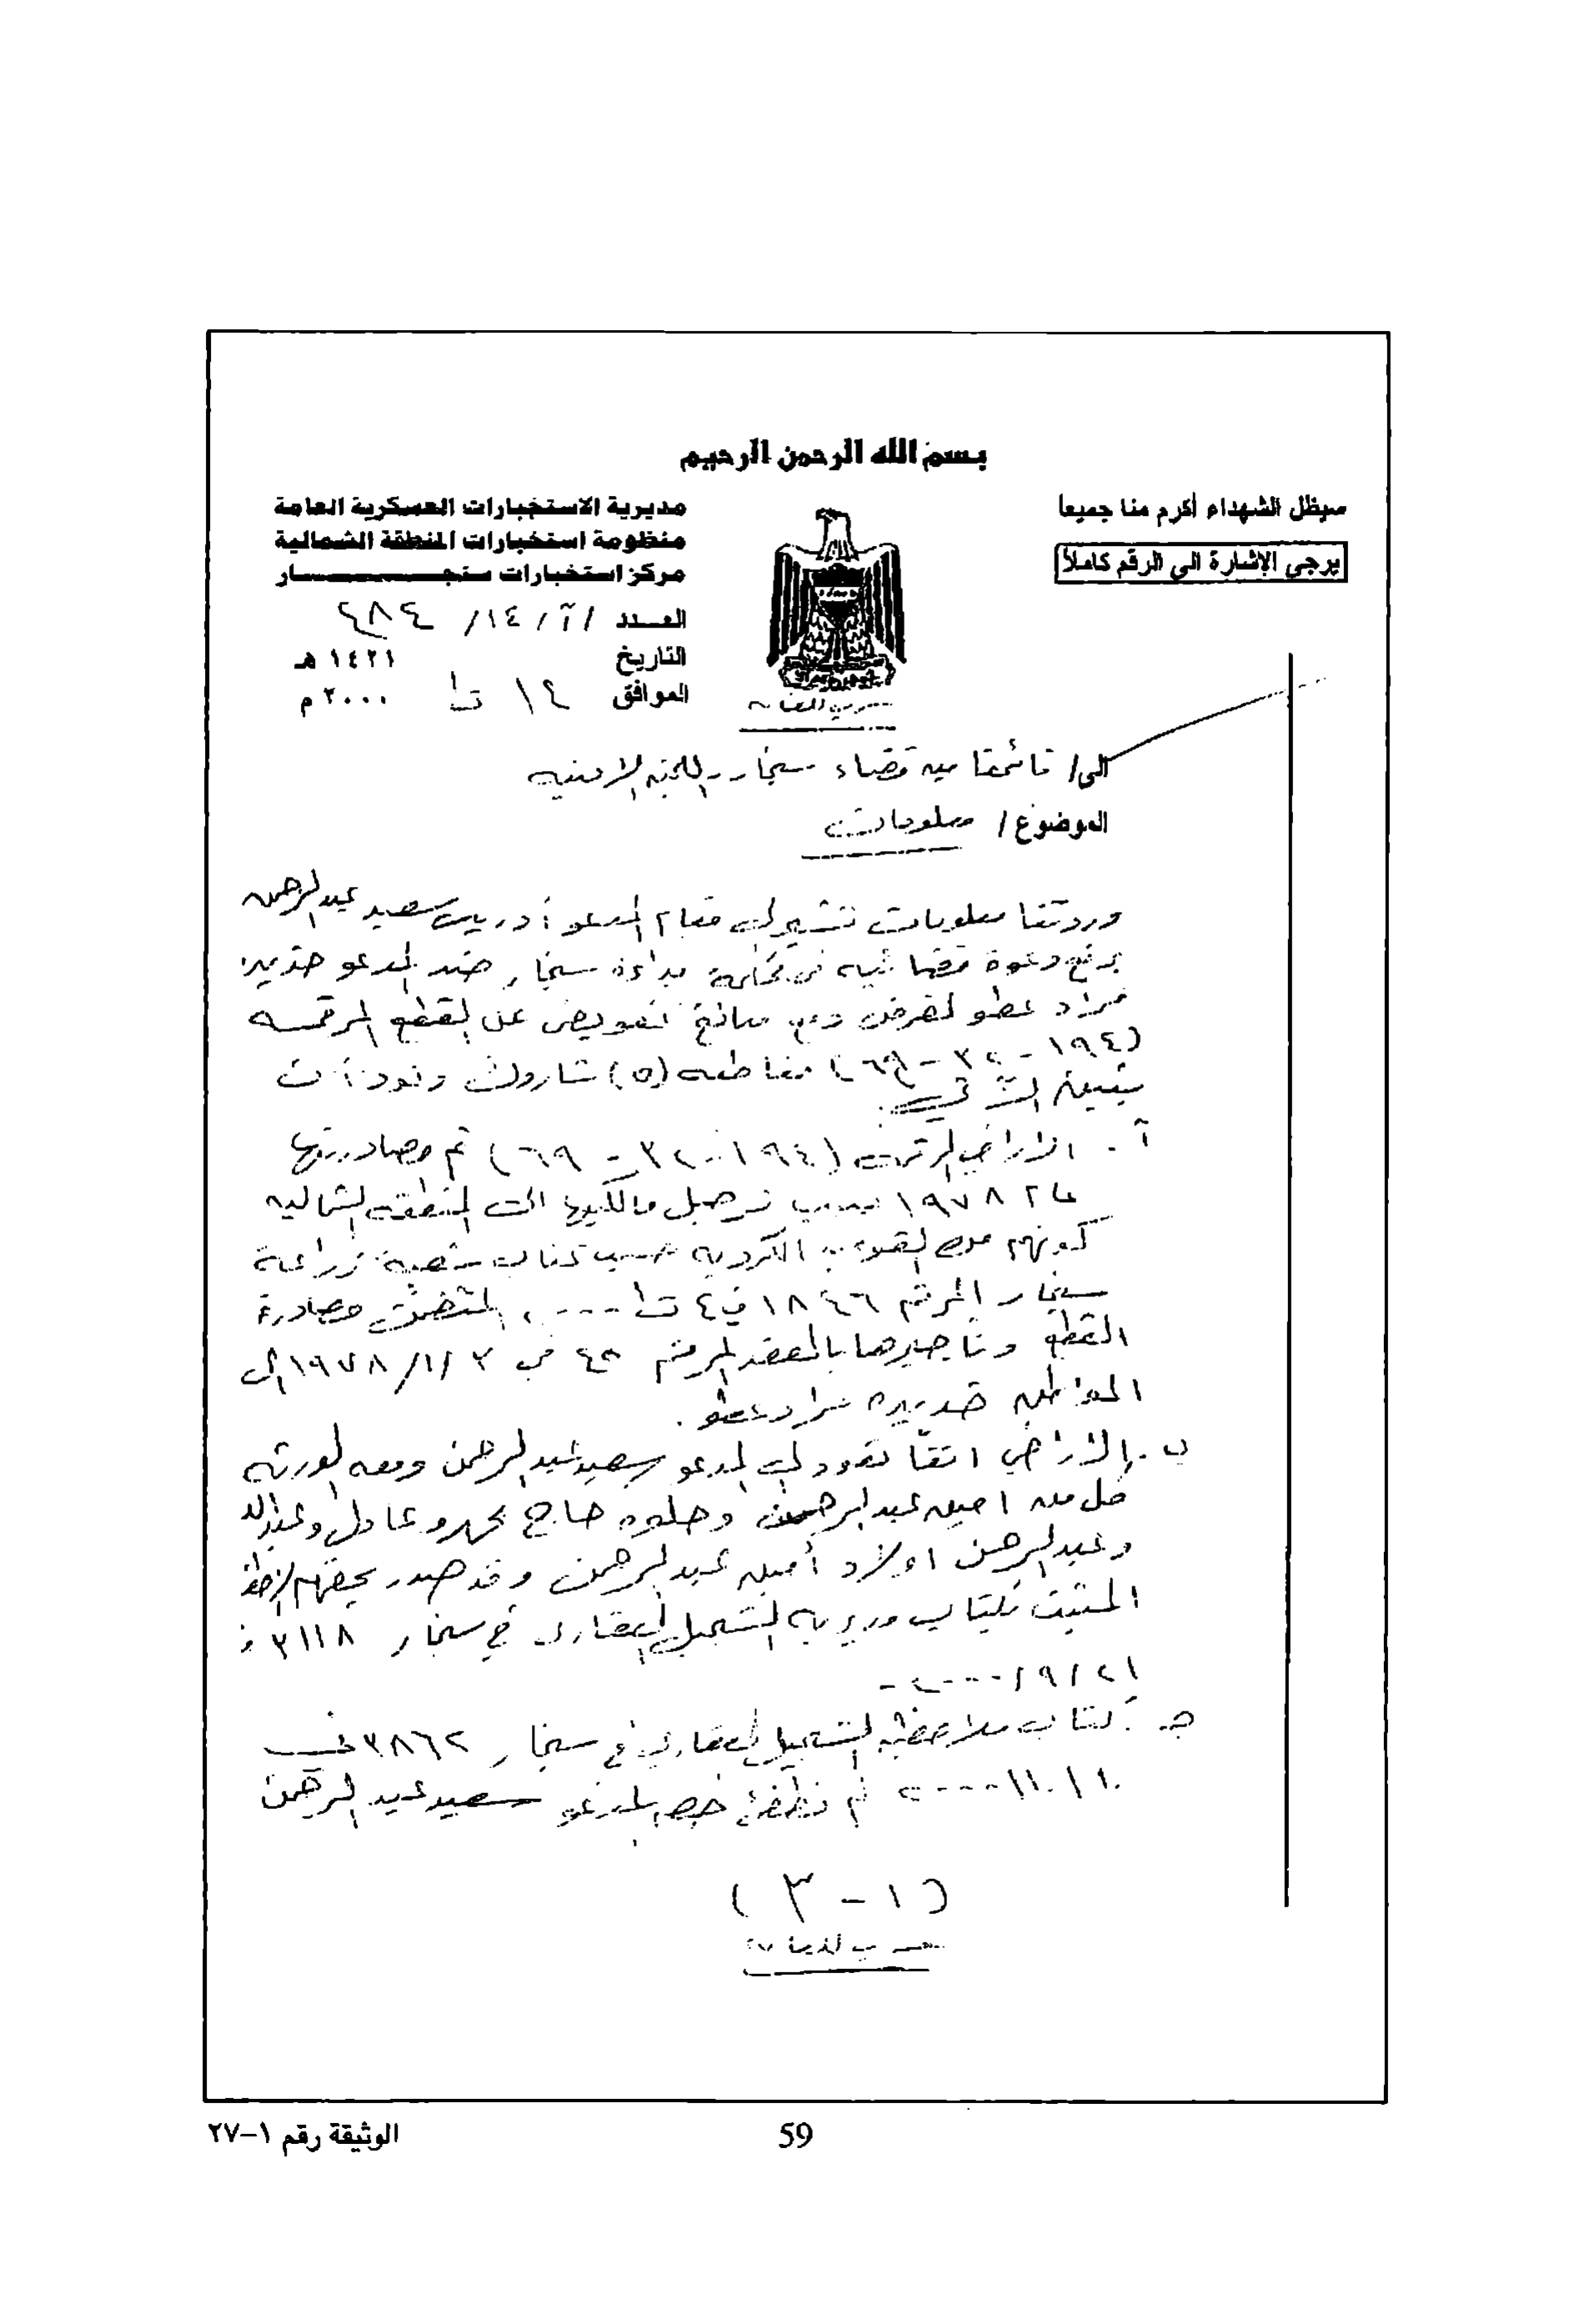 بسم الله الرحمن الرحيم
سيظل الشهداء أكرم منا جميعا
يرجى الإشارة الى الرقم كاملاً
مديرية الاستخبارات العسكرية العامة
منظومة استخبارات المنطقة الشمالية
مركز استخبارات سنجـــــــار
العـــدد /آ/ ١٤/ ٤٨٤
التاريخ ١٤٢١ هـ
الموافق ١٤ ت١ ٢٠٠٠ م
الى/ قائمقاميه قضاء سنجار - اللجنه الامنيه
الموضوع/ معلومات
وردتنا معلومات تشير الى قيام المدعو أدريس سعيد عبدالرحمن
برفع دعوة قضائيه في محكمة بداءة سنجار ضد المدعو خديده
مراد عطو لغرض دفع مبالغ تعويض عن القطع المرقمه
(١٩٤ - ٣٢ - ٦٩) مقاطعه (٥) شاروك ونود أن
نبين التالي
آ . الاراضي المرقمه (١٩٤ - ٣٢ - ٦٩) تم مصادرتها
عام ١٩٧٨ بسبب ترحيل مالكيها الى المنطقه الشماليه
كونهم من القوميه الكرديه حسب كتاب شعبة زراعة
سنجار المرقم ١٨٤٦ في ٤ ت١ ٢٠٠٠ المتضمن مصادرة
القطع وتأجيرها بالعقد المرقم ٤٥ في ١٩٧٨/١/٣ الى
المواطن خديده مراد عطو .
ب . الاراضي اتفا تعود الى المدعو سعيد عبدالرحمن ومعه الورثه
كل من امين عبدالرحمن وحلوه حاج محمد وعادل وعبدالله
وعبدالرحمن اولاد أمين عبدالرحمن وقد صدر بحقهم
المثبت بكتاب مديريه التسجيل العقاري في سنجار ٣١١٨ في
٢٠٠٠/٩/٢١
جـ . كتاب ملاحظيه التسجيل العقاري في سنجار ٣٨٦٢ في
٢٠٠٠/١١/١٠ لم المدعو سعيد عبدالرحمن
(١ - ٣)
59
الوثيقة رقم ١-٢٧